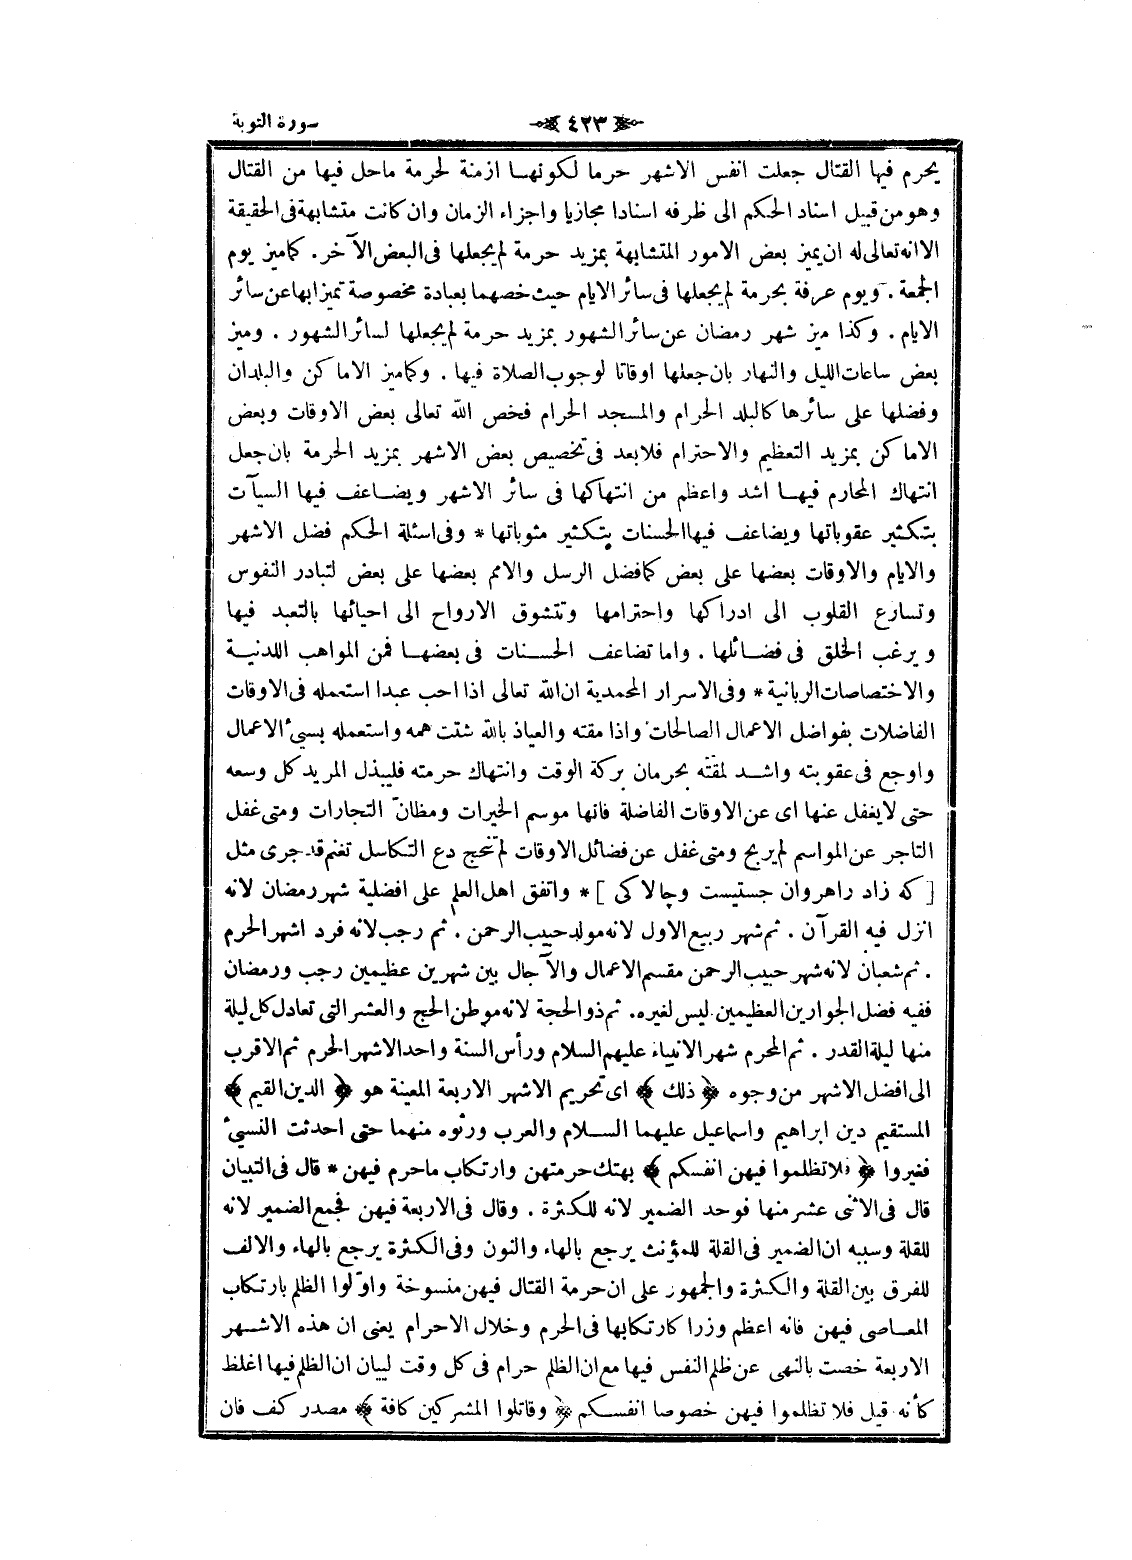 سورة التوبة
٤٢٣
يحرم فيها القتال جعلت انفس الاشهر حرما لكونها ازمنة لحرمة ماحل فيها من القتال
وهو من قبيل اسناد الحكم الى ظرفه اسنادا مجازيا واجزاء الزمان وان كانت متشابهة فى الحقيقة
الا انه تعالى له ان يميز بعض الامور المتشابهة بمزيد حرمة لم يجعلها فى البعض الآخر . كما ميز يوم
الجمعة . ويوم عرفة بحرمة لم يجعلها فى سائر الايام حيث خصهما بعبادة مخصوصة تميز ابها عن سائر
الايام . وكذا ميز شهر رمضان عن سائر الشهور بمزيد حرمة لم يجعلها لسائر الشهور . وميز
بعض ساعات الليل والنهار بان جعلها اوقاتا لوجوب الصلاة فيها . وكما ميز الاماكن والبلدان
وفضلها على سائرها كالبلد الحرام والمسجد الحرام فخص الله تعالى بعض الاوقات وبعض
الاماكن بمزيد التعظيم والاحترام فلا بعد فى تخصيص بعض الاشهر بمزيد الحرمة بان جعل
انتهاك المحارم فيها اشد واعظم من انتهاكها فى سائر الاشهر ويضاعف فيها السيآت
بتكثير عقوباتها ويضاعف فيها الحسنات بتكثير مثوباتها * وفى اسئلة الحكم فضل الاشهر
والايام والاوقات بعضها على بعض كما فضل الرسل والامم بعضها على بعض لتبادر النفوس
وتسارع القلوب الى ادراكها واحترامها وتتشوق الارواح الى احيائها بالتعبد فيها
ويرغب الخلق فى فضائلها . واما تضاعف الحسنات فى بعضها فمن المواهب اللدنية
والاختصاصات الربانية * وفى الاسرار المحمدية ان الله تعالى اذا احب عبدا استعمله فى الاوقات
الفاضلات بفواضل الاعمال الصالحات واذا مقته والعياذ بالله شتت همه واستعمله بسيئ الاعمال
واوجع فى عقوبته واشد لمقته بحرمان بركة الوقت وانتهاك حرمته فليبذل المريد كل وسعه
حتى لا يغفل عنها اى عن الاوقات الفاضلة فانها موسم الخيرات ومظانّ التجارات ومتى غفل
التاجر عن المواسم لم يربح ومتى غفل عن فضائل الاوقات لم تنجح دع التكاسل تغنم قد جرى مثل
[ كه زاد راهروان جستيست وچالاكى ] * واتفق اهل العلم على افضلية شهر رمضان لانه
انزل فيه القرآن . ثم شهر ربيع الاول لانه مولد حبيب الرحمن . ثم رجب لانه فرد اشهر الحرم
. ثم شعبان لانه شهر حبيب الرحمن مقسم الاعمال والآجال بين شهرين عظيمين رجب ورمضان
ففيه فضل الجوارين العظيمين ليس لغيره . ثم ذو الحجة لانه موطن الحج والعشر التى تعادل كل ليلة
منها ليلة القدر . ثم المحرم شهر الانبياء عليهم السلام ورأس السنة واحد الاشهر الحرم ثم الاقرب
الى افضل الاشهر من وجوه ﴿ ذلك ﴾ اى تحريم الاشهر الاربعة المعينة هو ﴿ الدين القيم ﴾
المستقيم دين ابراهيم واسماعيل عليهما السلام والعرب ورثوه منهما حتى احدثت النسيئ
فغيروا ﴿ فلا تظلموا فيهن انفسكم ﴾ بهتك حرمتهن وارتكاب ما حرم فيهن * قال فى التبيان
قال فى الاثنى عشر منها فوحد الضمير لانه للكثرة . وقال فى الاربعة فيهن فجمع الضمير لانه
للقلة وسببه ان الضمير فى القلة للمؤنث يرجع بالهاء والنون وفى الكثرة يرجع بالهاء والالف
للفرق بين القلة والكثرة والجمهور على ان حرمة القتال فيهن منسوخة واوّلوا الظلم بارتكاب
المعاصى فيهن فانه اعظم وزرا كارتكابها فى الحرم وخلال الاحرام يعنى ان هذه الاشهر
الاربعة خصت بالنهى عن ظلم النفس فيها مع ان الظلم حرام فى كل وقت لبيان ان الظلم فيها اغلظ
كأنه قيل فلا تظلموا فيهن خصوصا انفسكم ﴿ وقاتلوا المشركين كافة ﴾ مصدر كف فان